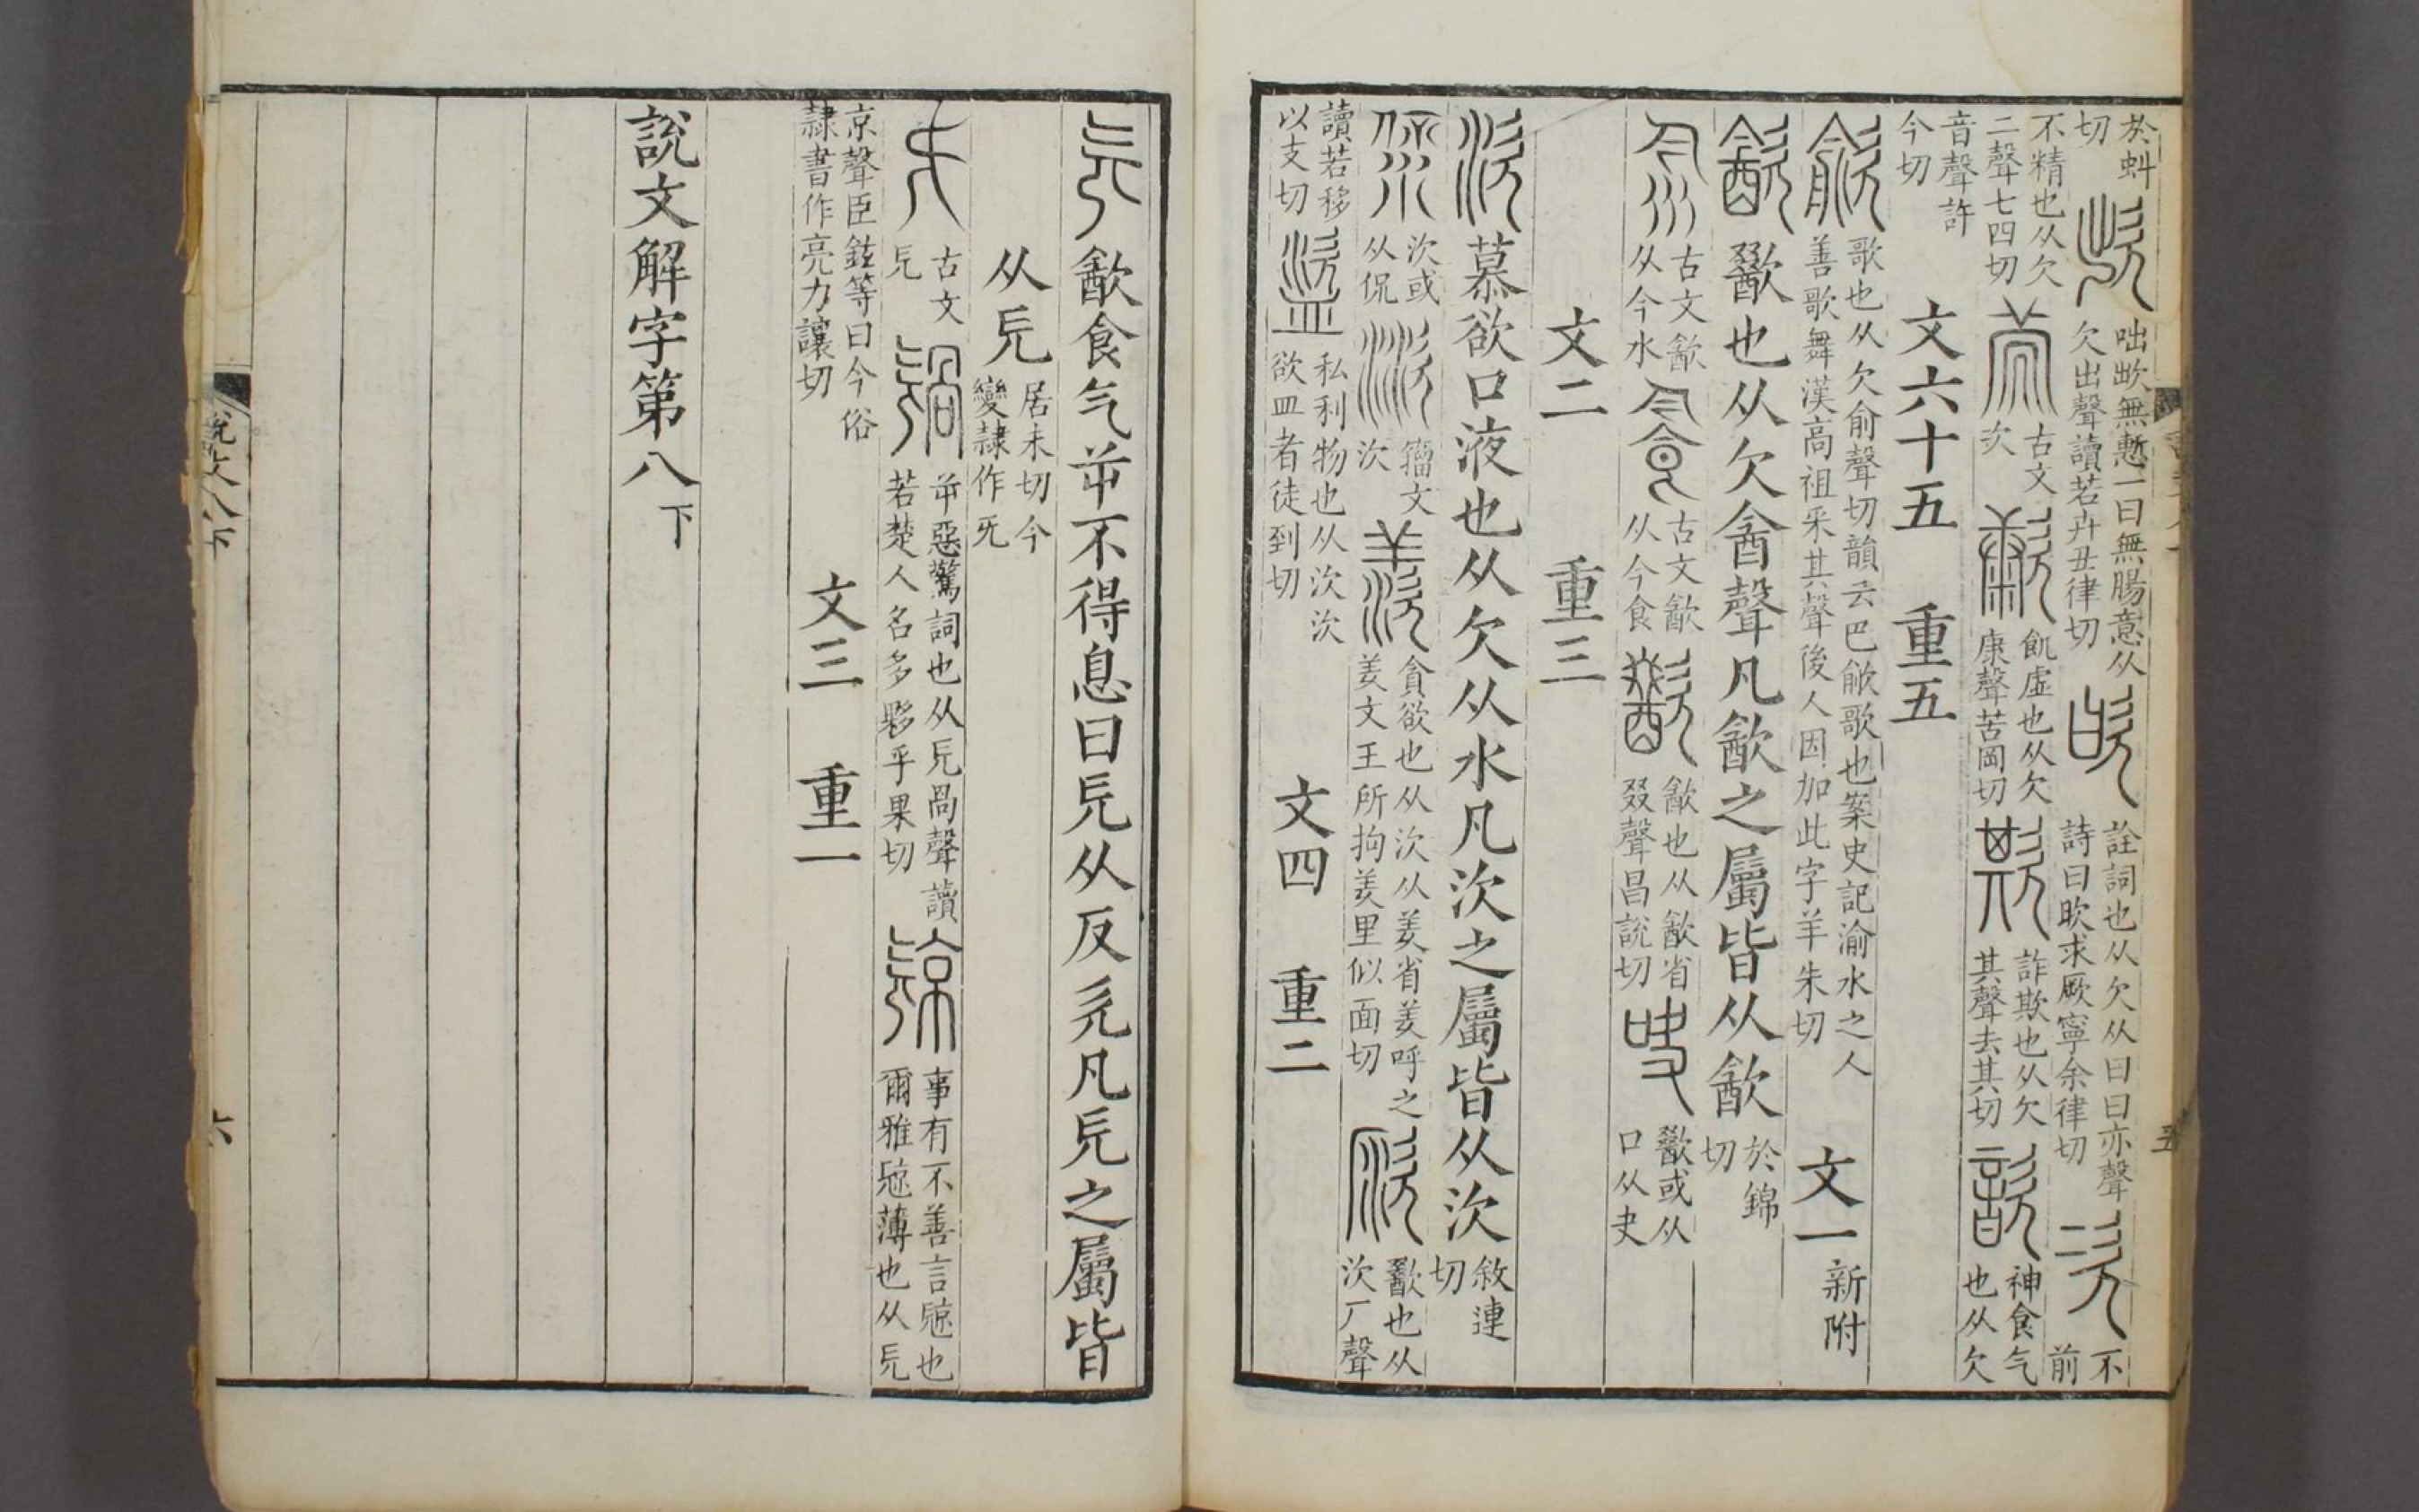 於蚪切 欪 咄欪無慙一曰無腸意从欠出聲讀若屮丑律切 欥 詮詞也从欠从曰曰亦聲詩曰欥求厥寧余律切 次 不前
不精也从欠二聲七四切 古文次 㱂 飢虛也从欠康聲苦岡切 欺 詐欺也从欠其聲去其切 歆 神食气也从欠
音聲許今切 文六十五 重五
歈 歌也从欠俞聲切韻云巴歈歌也案史記渝水之人善歌舞漢高祖采其聲後人因加此字羊朱切 文一新附
㱃 歠也从欠酓聲凡㱃之屬皆从㱃於錦切
古文㱃从今水 古文㱃从今食 歠 㱃也从㱃省叕聲昌說切 吷 歠或从口从夬
文二 重三
㳄 慕欲口液也从欠从水凡㳄之屬皆从㳄敘連切
㳄或从侃 籀文㳄 羨 貪欲也从㳄从羑省羑呼之羑文王所拘羑里似面切 歠也从㳄厂聲
讀若移以支切 盜 私利物也从㳄㳄欲皿者徒到切 文四 重二
㒫 㱃食气屰不得息曰㒫从反欠凡㒫之屬皆
从㒫居未切今變隷作旡
古文㒫 屰惡驚詞也从㒫咼聲讀若楚人名多夥乎果切 事有不善言䣼也爾雅䣼薄也从㒫
京聲臣鉉等曰今俗隷書作亮力讓切 文三 重一
說文解字第八下
說文八下
六
五